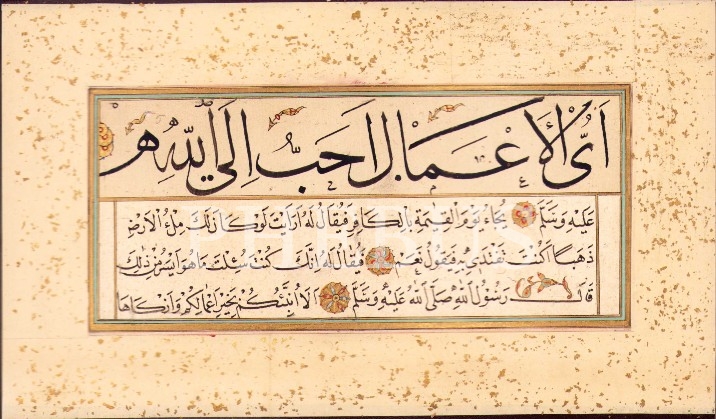 اَىُّ الْاَعْمَالِ اَحَبُّ اِلَى اللّٰهِ
عَلَيْهِ وَسَلَّمَ يُجَاءُ يَوْمَ الْقِيٰمَةِ بِالْكَافِرِ فَيُقَالُ لَهُ اَرَاَيْتَ لَوْ كَانَ لَكَ مِلْءُ الْاَرْضِ
ذَهَبًا اَكُنْتَ تَفْتَدِى بِهِ فَيَقُولُ نَعَمْ فَيُقَالُ لَهُ اِنَّكَ كُنْتَ سُئِلْتَ مَا هُوَ اَيْسَرُ مِنْ ذٰلِكَ
قَالَ رَسُولُ اللّٰهِ صَلَّى اللّٰهُ عَلَيْهِ وَسَلَّمَ اَلَا اُنَبِّئُكُمْ بِخَيْرِ اَعْمَالِكُمْ وَاَزْكَاهَا